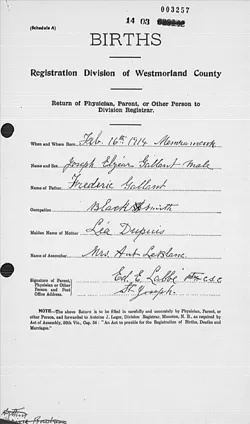 003257
14 03
(Schedule A)
BIRTHS
Registration Division of Westmorland County
Return of Physician, Parent, or Other Person to
Division Registrar.
When and Where Born Feb. 16th 1914 Memramcook
Name and Sex Joseph Elzear Gallant Male
Name of Father Frederic Gallant
Occupation Blacksmith
Maiden Name of Mother Léa Dupuis
Name of Accoucheur Mrs. Ant. LeBlanc
Signature of Parent,
Physician or Other
Person and Post
Office Address.
Ed. E. Labbé c.s.c.
St. Joseph.
NOTE.—The above Return is to be filled in carefully and accurately by Physician, Parent, or
other Person, and forwarded to Antoine J. Leger, Division Registrar, Moncton, N. B., as required by
Act of Assembly, 50th Vic., Cap. 54: "An Act to provide for the Registration of Births, Deaths and
Marriages."